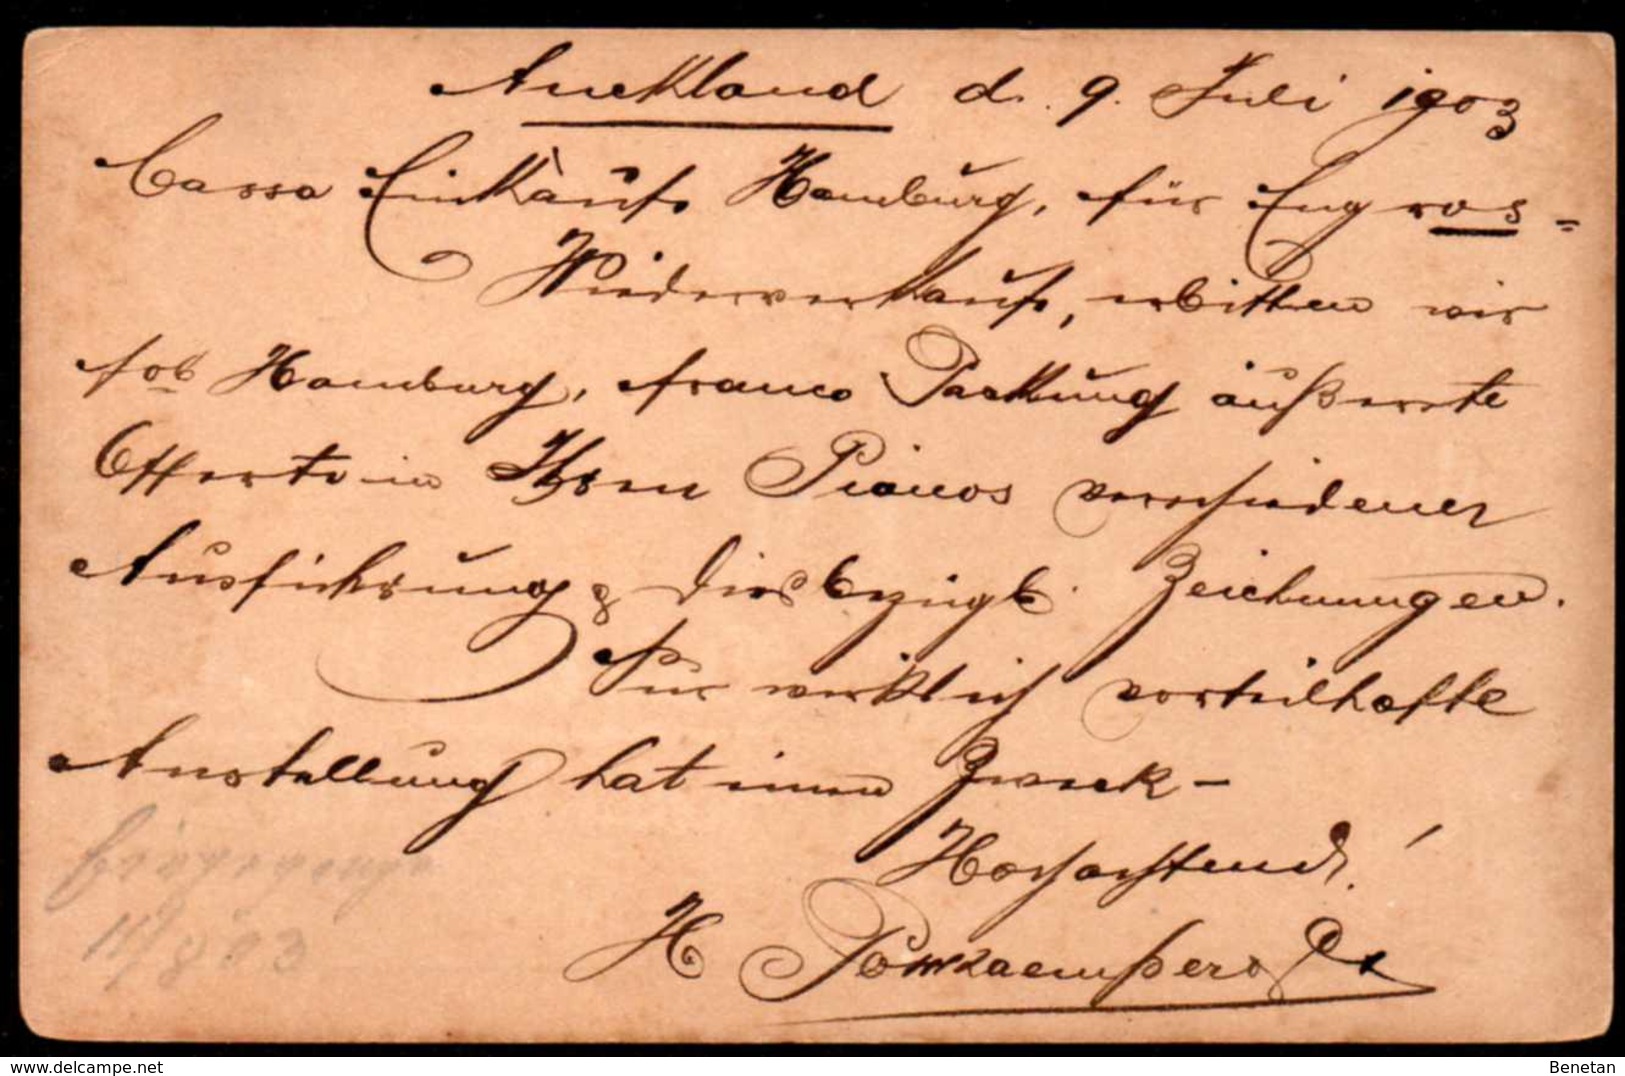 Auckland d. 9. Juli 1903
Cassa Einkäufe Hamburg, für Engros=
Wiederverkauf, erbitten wir
fob Hamburg, franco Packung äußerste
Offerte in Ihren Pianos verschiedener
Ausführung & diesbezügl. Zeichnungen.
Nur wirklich vorteilhafte
Anstellung hat einen Zweck –
Hochachtend!
H
11/8 03
delcampe.net
Benetan